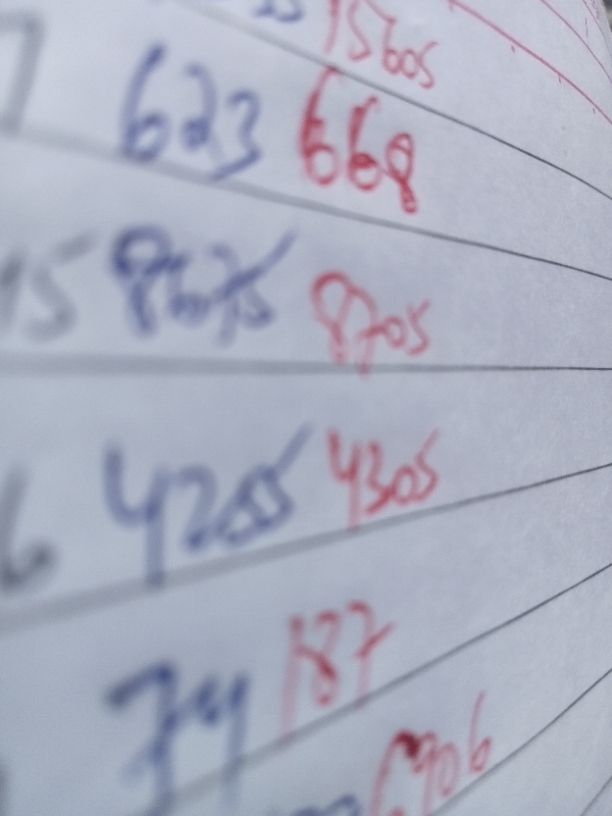 15605
623 668
15 8675 8705
6 4255 4305
74 187
6906